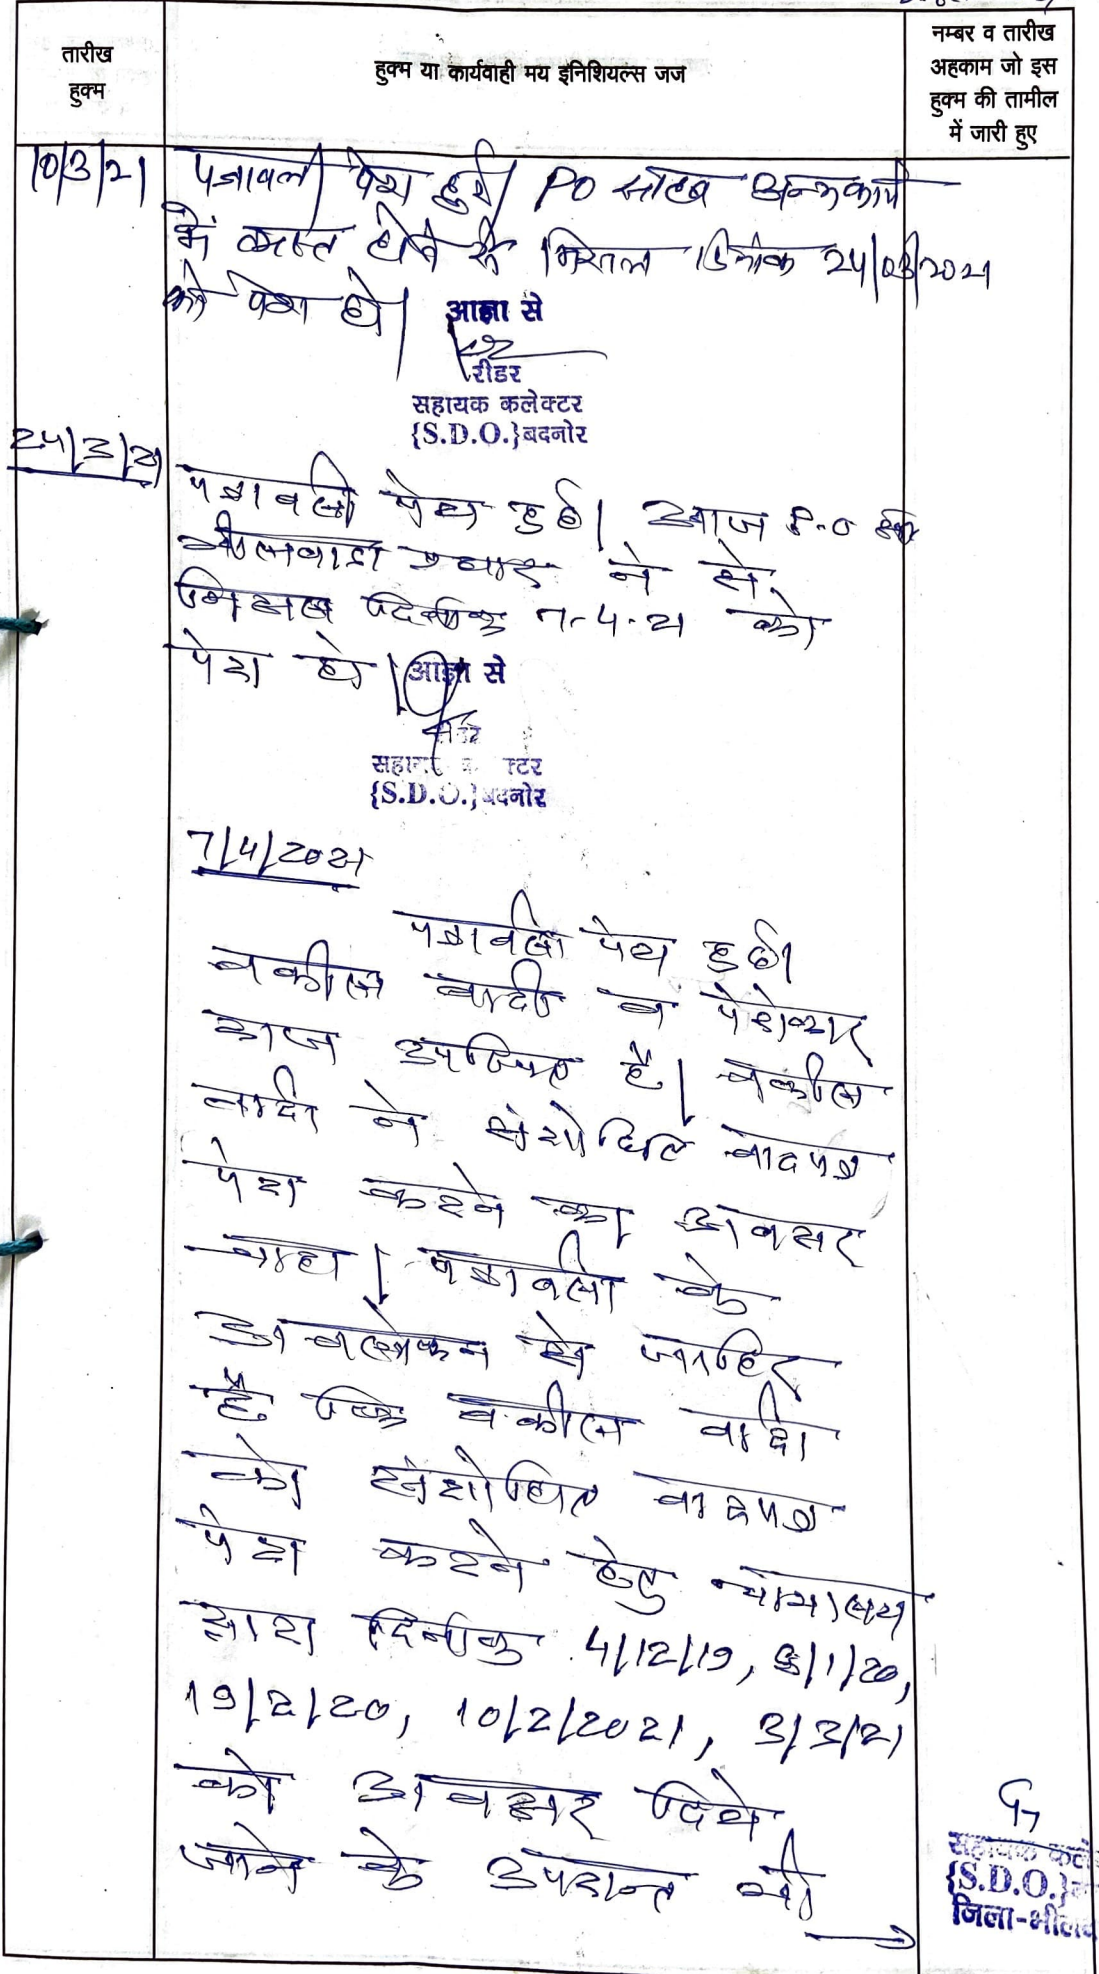 तारीख
हुक्म
हुक्म या कार्यवाही मय इनिशियल्स जज
नम्बर व तारीख
अहकाम जो इस
हुक्म की तामील
में जारी हुए
10/3/21
पत्रावली पेश हुई। PO साहब अन्य कार्य
में व्यस्त होने से मिसल दिनांक 24/03/2021
को पेश हो।
आज्ञा से
रीडर
सहायक कलेक्टर
{S.D.O.} बदनोर
24/3/21
पत्रावली पेश हुई। आज P.O
भीलवाडा पधारने से
मिसल दिनांक 7-4-21 को
पेश हो।
आज्ञा से
रीडर
सहायक कलेक्टर
{S.D.O.} बदनोर
7/4/2021
पत्रावली पेश हुई।
वकील वादी व पेरोकार
राज उपस्थित है। वकील
वादी ने संशोधित वादपत्र
पेश करने का अवसर
चाहा। पत्रावली के
अवलोकन से जाहिर
है कि वकील वादी
को संशोधित वादपत्र
पेश करने हेतु न्यायालय
द्वारा दिनांक 4/12/19, 8/1/20,
19/2/20, 10/2/2021, 3/3/21
को अवसर दिये
जाने के उपरान्त भी
सहायक कले
{S.D.O.} ब
जिला-भील